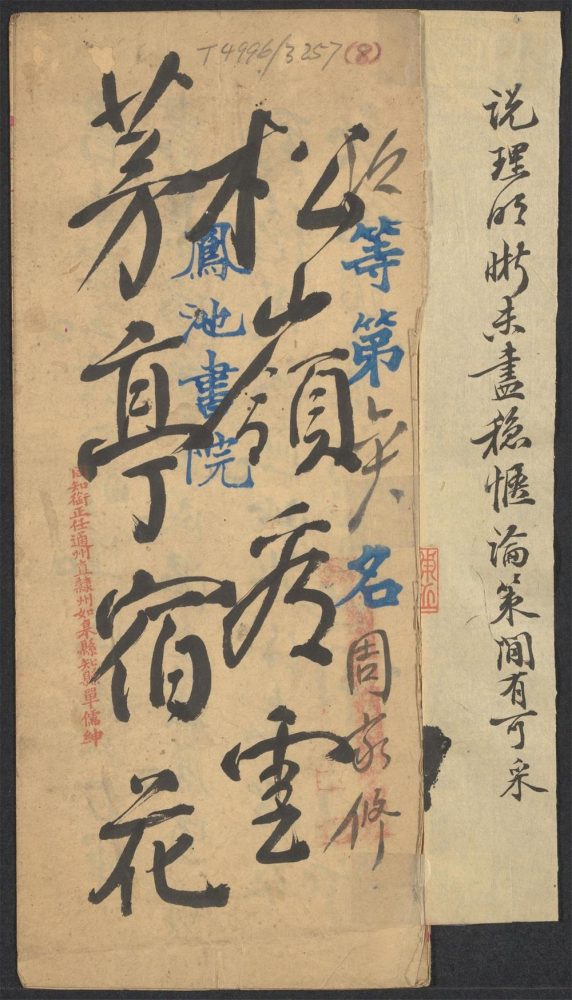 T4996/3257(8)
说理明晰未盡穩愜論策間有可采
等第名周家修
松嶺秀雲
鳳池書院
芳亭宿花
同知銜正任通州直隸州如皋縣知縣單儒紳